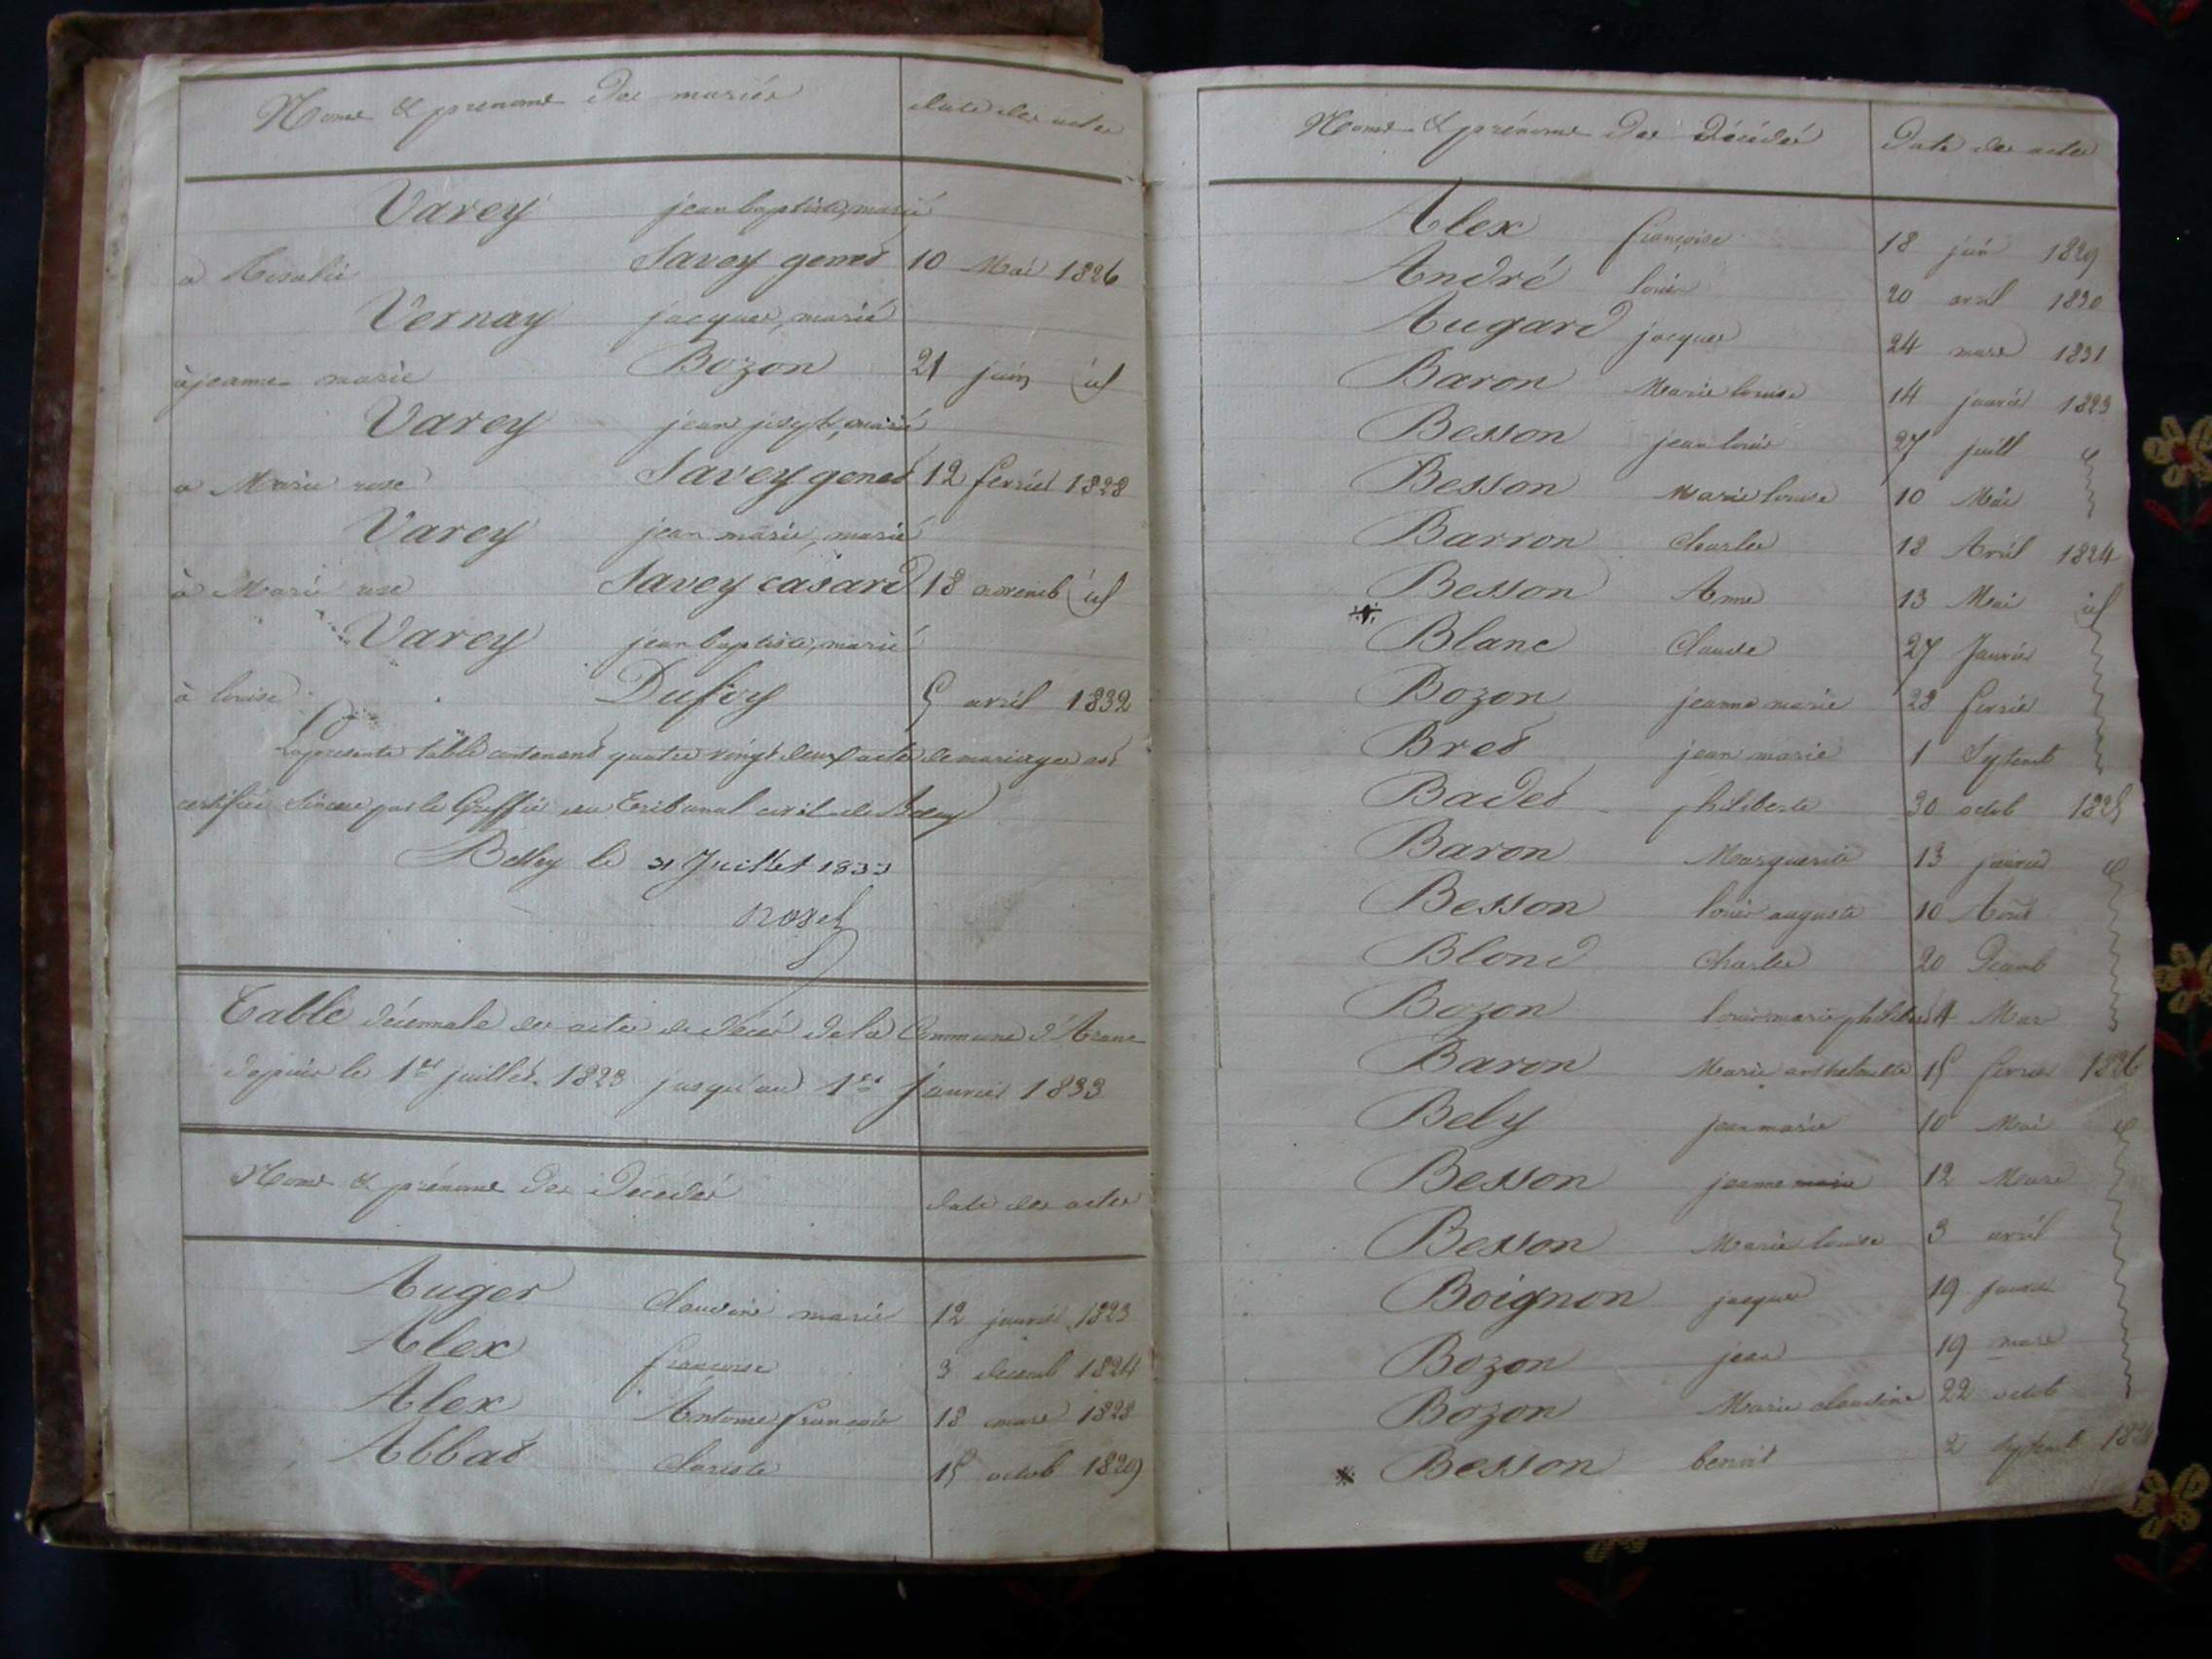 Noms & prenoms des mariés date des actes
Varey jean baptiste, marié
a Rosalie Savey genod 10 Mai 1826
Vernay jacques, marié
à jeanne marie Bozon 21 juin id
Varey jean joseph, marié
a Marie rose Savey genod 12 fevrier 1828
Varey jean marie, marié
à Marie rose Savey casard 18 novemb id
Varey jean baptiste, marié
à louise Dufoy 5 avril 1832
La presente table contenant quatre vingt deux actes de mariage est
certifiée sincere par le Greffier du Tribunal civil de Belley
Belley le 31 Juillet 1833
Table décennale des actes de décès de la Commune d'Aranc
depuis le 1er juillet 1823 jusqu'au 1er janvier 1833
Noms & prénoms des Décédés date des actes
Auger Claudine marie 12 janvier 1823
Alex francoise 3 decemb 1824
Alex Antoine françois 18 mars 1828
Abbad 15 octob 1829
Noms & prénoms des Décédés Date des actes
Alex françoise 18 juin 1829
André louis 20 avril 1830
Augard jacques 24 mars 1831
Baron Marie louise 14 janvier 1823
Besson jean louis 27 juill
Besson Marie louise 10 Mai
Barron Charles 18 Avril 1824
Besson Anne 13 Mai id
Blanc Claude 27 Janvier
Bozon jeanne marie 28 fevrier
Bred jean marie 1 Septemb
Baded philiberte 30 octob 1825
Baron Marguerite 13 janvier
Besson louis auguste 10 Aout
Blond Charles 20 Decemb
Bozon louis marie philibert 4 Mars
Baron Marie anthelmette 15 fevrier 1826
Bely jean marie 10 Mai
Besson jeanne marie 12 Mars
Besson Marie louise 3 avril
Boignon jacques 19 janvier
Bozon jean 19 mars
Bozon Marie claudine 22 octob
Besson benoit 2 septemb